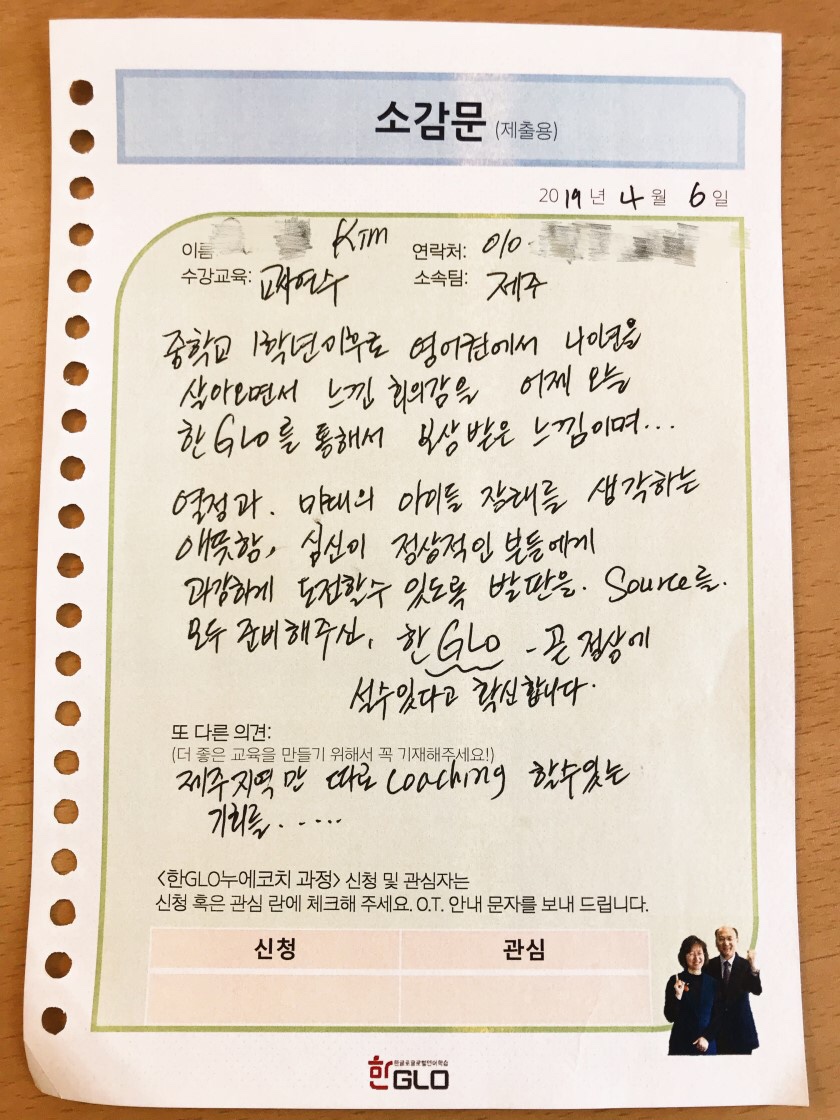 소감문 (제출용)
2019년 4월 6일
이름 KIM 연락처: 010
수강교육: 교사연수 소속팀: 제주
중학교 1학년이후로 영어권에서 나의년을
살아오면서 느낀 회의감을 어제 오늘
한GLO를 통해서 보상받은 느낌이며...
열정과. 미래의 아이들 장래를 생각하는
애뜻함, 심신이 정상적인 분들에게
과감하게 도전할수 있도록 발판을. Source를.
모두 준비해주신, 한GLO - 곧 정상에
설수있다고 확신합니다.
또 다른 의견:
(더 좋은 교육을 만들기 위해서 꼭 기재해주세요!)
제주지역만 따로 Coaching 할수있는
기회를......
<한GLO누에코치 과정> 신청 및 관심자는
신청 혹은 관심 란에 체크해 주세요. O.T. 안내 문자를 보내 드립니다.
신청 관심
한글로글로벌언어학습
한GLO